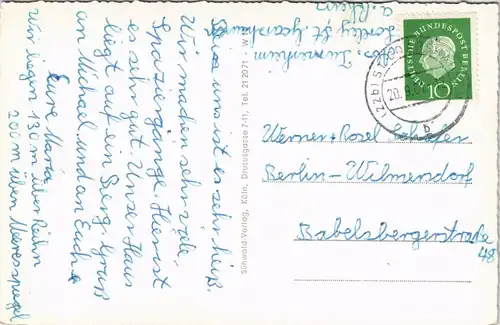 Abs. Turnerheim
Loreley St. Goarshausen
a. Rhein
Hier bei uns ist es sehr heiß.
Wir machen sehr viele
Spaziergänge. Hier ist
es sehr gut. Unser Haus
liegt auf ein Berg. Gruß
an Michael und an Euch
Eure Maria
Wir liegen 130 m über Rhein
200 m über Meeresspiegel
Sünwold-Verlag, Köln, Drususgasse 7-11, Tel. 21 20 71 · W
DEUTSCHE BUNDESPOST BERLIN
10
(22b) ST. GOAR
20.9.
b
Werner + Rosel Schäfer
Berlin-Wilmersdorf
Babelsbergerstraße
48